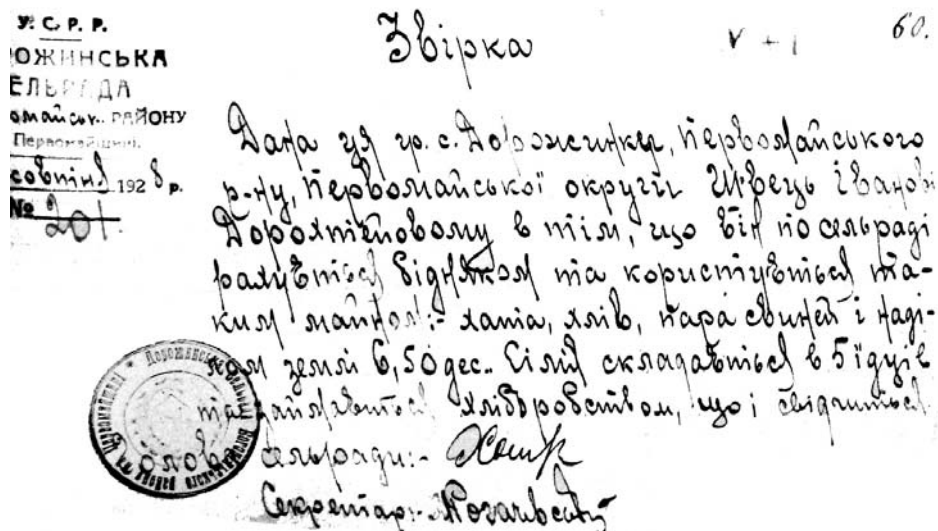 У. С. Р. Р.
ОЖИНСЬКА
ЕЛЬРАДА
омайськ. РАЙОНУ
Первомайщини.
1928 р.
№ 201
60.
V + 1
Звірка
Дана ця гр. с. Дорожинки, Первомайського
р-ну, Первомайської округи Швець Іванові
Дорохтейовому в тім, що він по сельраді
рахується бідняком та користується та-
ким майном:- хата, хлів, пара свиней і наді-
лом землі 6,50 дес.. Сімія складається в 5 їдців
та займається хліборобством, що і свідчиться.
Голова сельради:-
Секретар:-